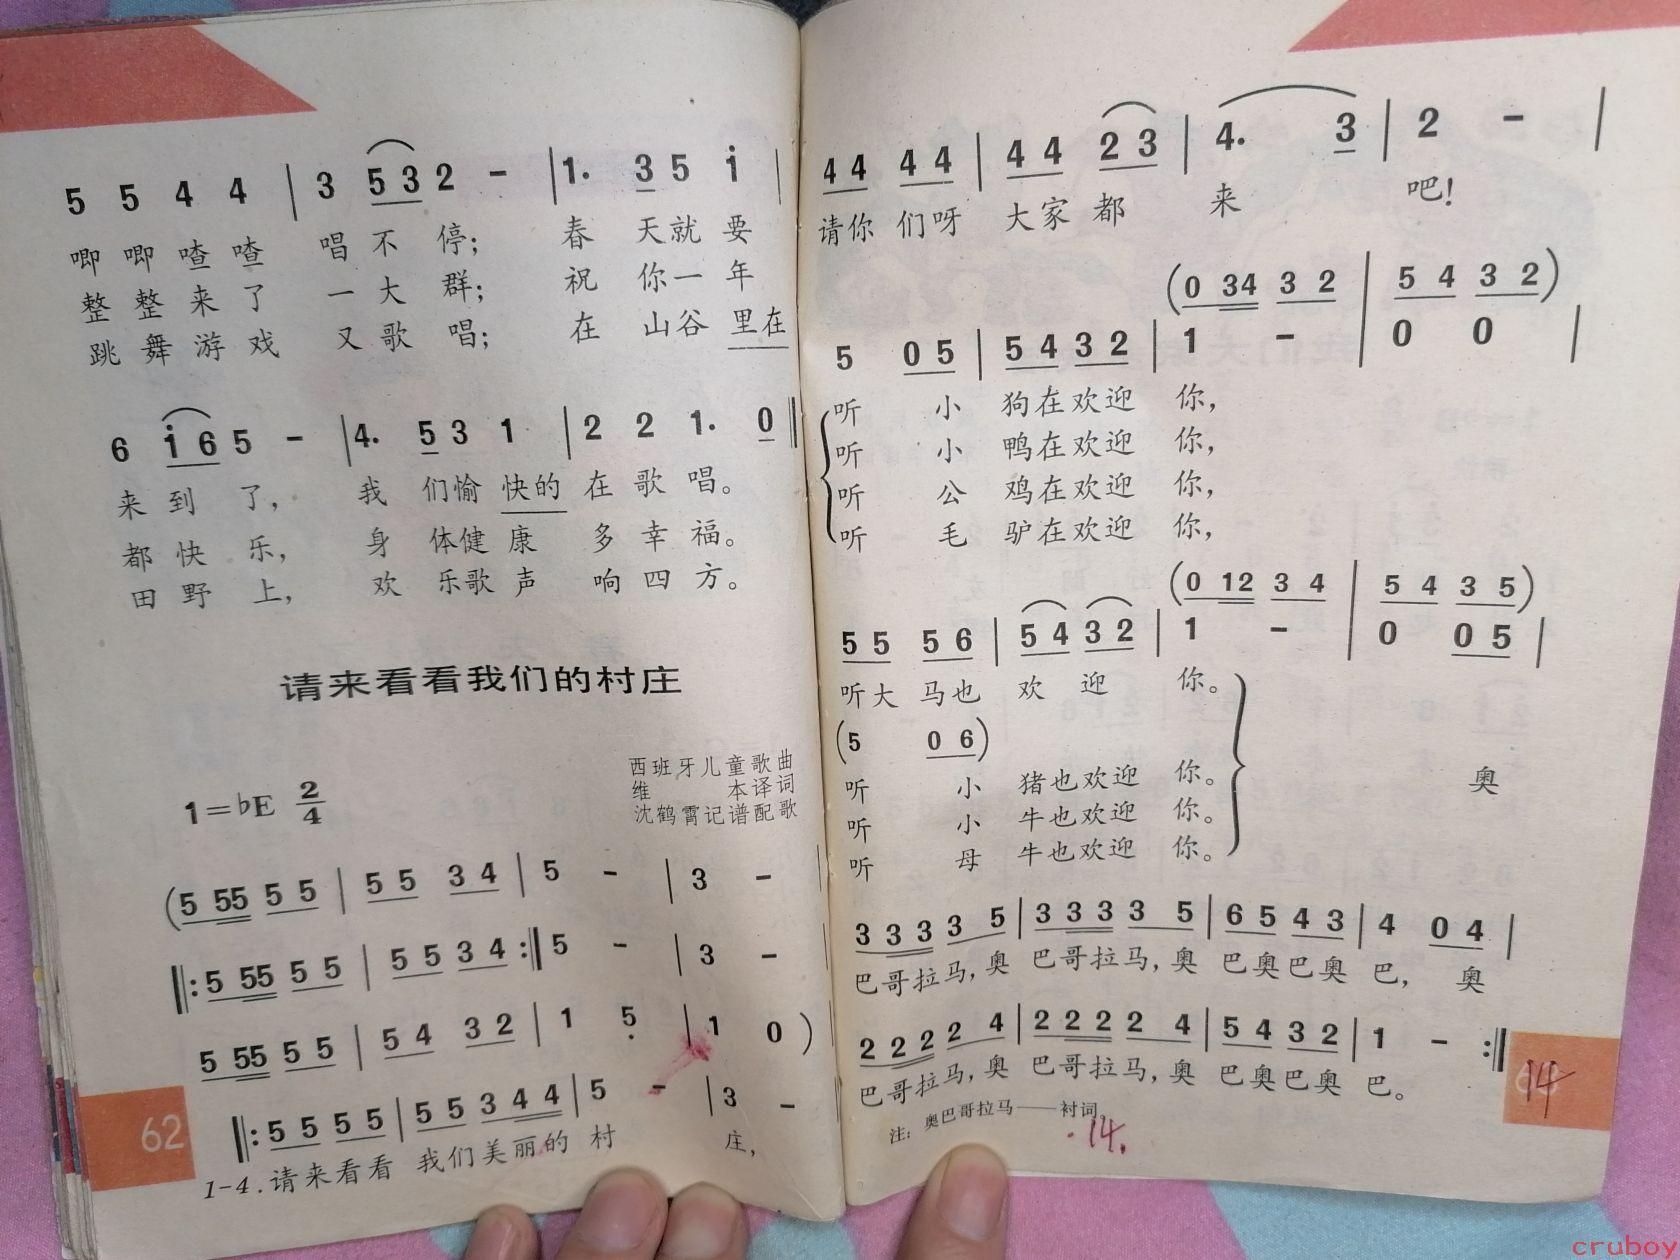 5 5 4 4 | 3 5 3 2 - | 1. 3 5 i |
唧唧喳喳 唱不停; 春 天就要
整整来了 一大群; 祝 你一年
跳舞游戏 又歌唱; 在 山谷里在
6 i 6 5 - | 4. 5 3 1 | 2 2 1. 0 ‖
来到了, 我 们愉快的 在歌唱。
都快乐, 身 体健康 多幸福。
田野上, 欢 乐歌声 响四方。
请来看看我们的村庄
西班牙儿童歌曲
维 本译词
沈鹤霄记谱配歌
1=♭E 2/4
(5 55 5 5 | 5 5 3 4 | 5 - | 3 -
‖: 5 55 5 5 | 5 5 3 4 :‖ 5 - | 3 -
5 55 5 5 | 5 4 3 2 | 1 5̣ | 1 0 )
‖: 5 5 5 5 | 5 5 3 4 4 | 5 - | 3 -
1-4.请来看看 我们美丽的 村 庄,
62
4 4 4 4 | 4 4 2 3 | 4. 3 | 2 - |
请你们呀 大家都 来 吧!
(0 34 3 2 | 5 4 3 2)
5 0 5 | 5 4 3 2 | 1 - | 0 0 |
听 小 狗在欢迎 你,
听 小 鸭在欢迎 你,
听 公 鸡在欢迎 你,
听 毛 驴在欢迎 你,
(0 12 3 4 | 5 4 3 5)
5 5 5 6 | 5 4 3 2 | 1 - | 0 0 5 |
听大马也 欢迎 你。
(5 0 6)
听 小 猪也欢迎 你。 奥
听 小 牛也欢迎 你。
听 母 牛也欢迎 你。
3 3 3 3 5 | 3 3 3 3 5 | 6 5 4 3 | 4 0 4 |
巴哥拉马,奥 巴哥拉马,奥 巴奥巴奥 巴, 奥
2 2 2 2 4 | 2 2 2 2 4 | 5 4 3 2 | 1 - :‖
巴哥拉马,奥 巴哥拉马,奥 巴奥巴奥 巴。
注:奥巴哥拉马——衬词。
14.
14
cruboy